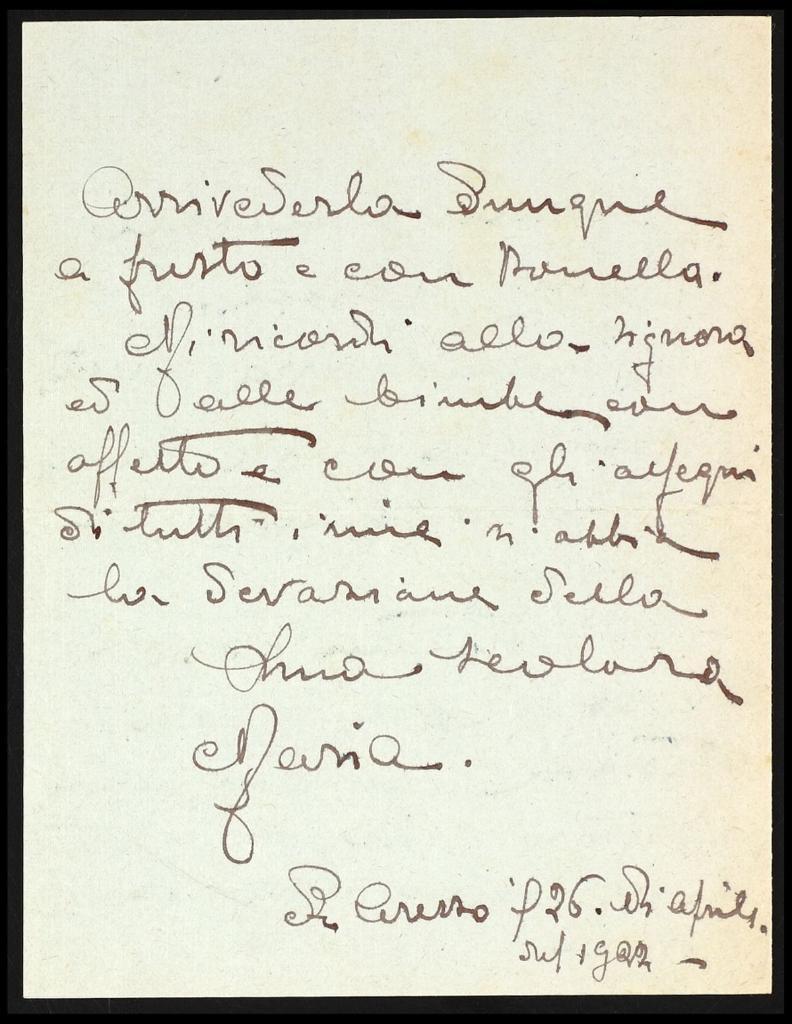 Arrivederla Dunque
a presto e con Donella.
Mi ricordi alla signora
ed alle bimbe con
affetto e con gli assegni
di tutti i miei si abbia
la devozione della
Sua scolara
Maria.
Di Arezzo il 26. di aprile.
del 1922